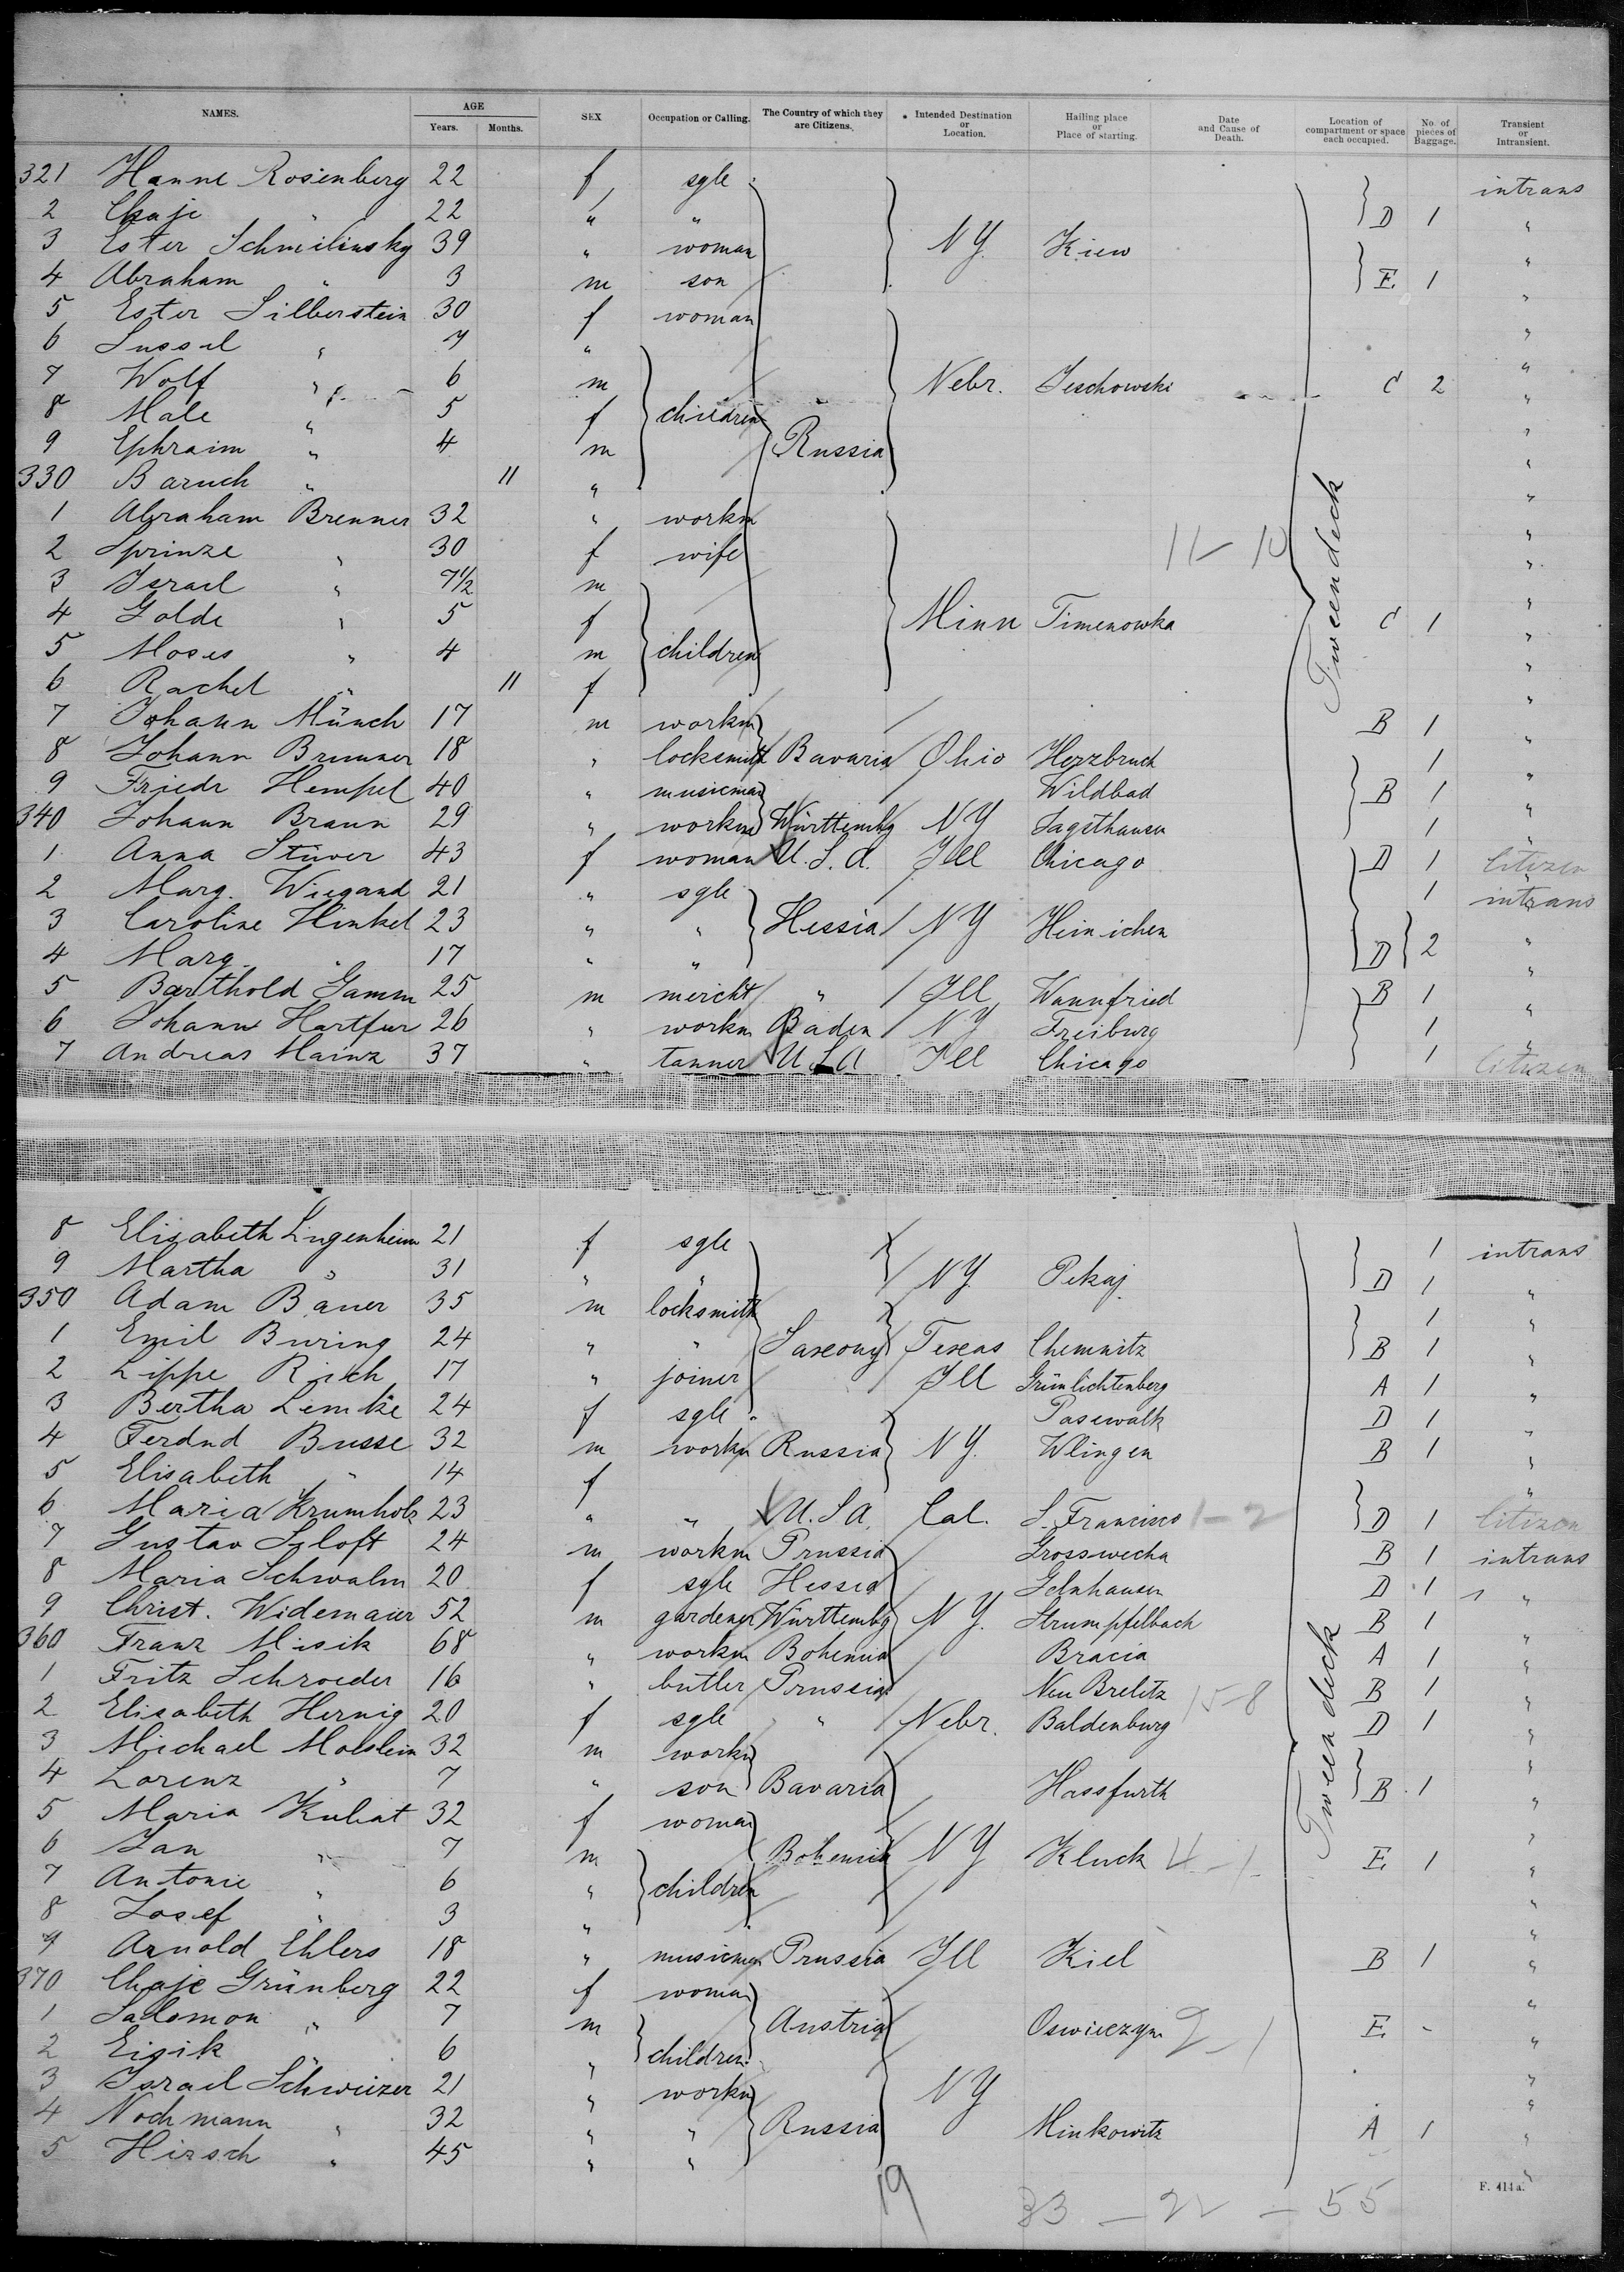 NAMES. AGE Years. Months. SEX Occupation or Calling. The Country of which they are Citizens. Intended Destination or Location. Hailing place or Place of starting. Date and Cause of Death. Location of compartment or space each occupied. No. of pieces of Baggage. Transient or Intransient.
321 Hanne Rosenberg 22 f sgle intrans
2 Chaje " 22 " " D 1 "
3 Ester Schmilinsky 39 " woman N Y. Kiew "
4 Abraham " 3 m son E. 1 "
5 Ester Silberstein 30 f woman "
6 Sussel " 7 " "
7 Wolf " 6 m Nebr. Jeschowski C 2 "
8 Male " 5 f children "
9 Ephraim " 4 m Russia "
330 Baruch " 11 " "
1 Abraham Brenner 32 " workm "
2 Sprinze " 30 f wife "
3 Israel " 7 1/2 m "
4 Golde " 5 f Minn Timenowka C 1 "
5 Moses " 4 m children "
6 Rachel " 11 f "
7 Johann Münch 17 m workm B 1 "
8 Johann Brunner 18 " locksmith Bavaria Ohio Herzbruch 1 "
9 Friedr Hempel 40 " musicman Wildbad B 1 "
340 Johann Braun 29 " workm Württembg N Y Jagsthausen 1 "
1 Anna Stüver 43 f woman U. S. A. Ill Chicago D 1 Citizen
2 Marg. Wiegand 21 " sgle 1 intrans
3 Caroline Hinkel 23 " " Hessia N Y Heinichen "
4 Marg. " 17 " " D 2 "
5 Barthold Gamm 25 m mercht " Ill Wannfried B 1 "
6 Johann Hartfur 26 " workm Baden N Y Freiburg 1 "
7 Andreas Mainz 37 " tanner U S A Ill Chicago 1 Citizen
Tweendeck
8 Elisabeth Lingenheim 21 f sgle 1 intrans
9 Martha " 31 " " N Y. Pekaj D 1 "
350 Adam Bauer 35 m locksmith 1 "
1 Emil Buring 24 " " Saxony Texas Chemnitz B 1 "
2 Lippe Rich 17 " joiner Ill Grünlichtenberg A 1 "
3 Bertha Lemke 24 f sgle Pasewalk D 1 "
4 Ferdnd Busse 32 m workm Russia N Y. Wlingen B 1 "
5 Elisabeth " 14 f "
6 Maria Krumholz 23 " " U. S A. Cal. S. Francisco 1-2 D 1 Citizen
7 Gustav Sloft 24 m workm Prussia Grosswecha B 1 intrans
8 Maria Schwalm 20 f sgle Hessia Gelnhausen D 1 "
9 Christ. Widemaier 52 m gardener Württembg N Y. Strumpfelbach B 1 "
360 Franz Misik 68 " workm Bohemia Bracia A 1 "
1 Fritz Schroeder 16 " butler Prussia Neu Brelitz B 1 "
2 Elisabeth Hernig 20 f sgle " Nebr. Baldenburg 15-8 D 1 "
3 Michael Molslein 32 m workm "
4 Lorenz " 7 " son Bavaria Hassfurth B 1 "
5 Maria Kubat 32 f woman "
6 Jan " 7 m Bohemia N Y Kluck 4-1 E. 1 "
7 Antonie " 6 " children "
8 Josef " 3 " "
9 Arnold Ehlers 18 " musicman Prussia Ill Kiel B 1 "
370 Chaje Grünberg 22 f woman "
1 Salomon " 7 m Austria Oswieczyn 2-1 E. - "
2 Eisik " 6 " children "
3 Israel Schweizer 21 " workm N Y "
4 Nochmann " 32 " " Russia Minkowitz A 1 "
5 Hirsch " 45 " " "
Tweendeck
19 33 - 22 - 55
F. 414a.